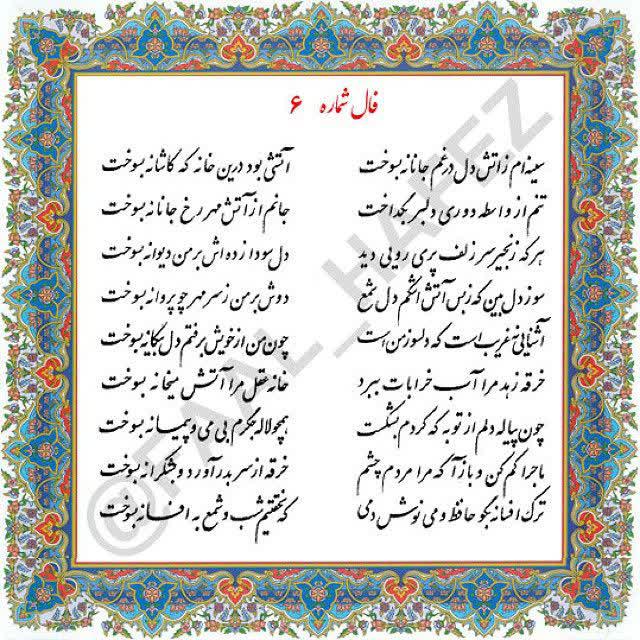 فال شماره ۶
سینه‌ام ز آتش دل در غم جانانه بسوخت آتشی بود درین خانه که کاشانه بسوخت
تنم از واسطه دوری دلبر بگداخت جانم از آتش مهر رخ جانانه بسوخت
هر که زنجیر سر زلف پری رویی دید دل سودازده‌اش بر من دیوانه بسوخت
سوز دل بین که ز بس آتش اشکم دل شمع دوش بر من ز سر مهر چو پروانه بسوخت
آشنایی نه غریب است که دلسوز من است چون من از خویش برفتم دل بیگانه بسوخت
خرقه زهد مرا آب خرابات ببرد خانه عقل مرا آتش میخانه بسوخت
چون پیاله دلم از توبه که کردم بشکست همچو لاله جگرم بی می و پیمانه بسوخت
ماجرا کم کن و بازآ که مرا مردم چشم خرقه از سر بدر آورد و بشکرانه بسوخت
ترک افسانه بگو حافظ و می نوش دمی که نخفتیم شب و شمع به افسانه بسوخت
@FAAL_HAFEZ